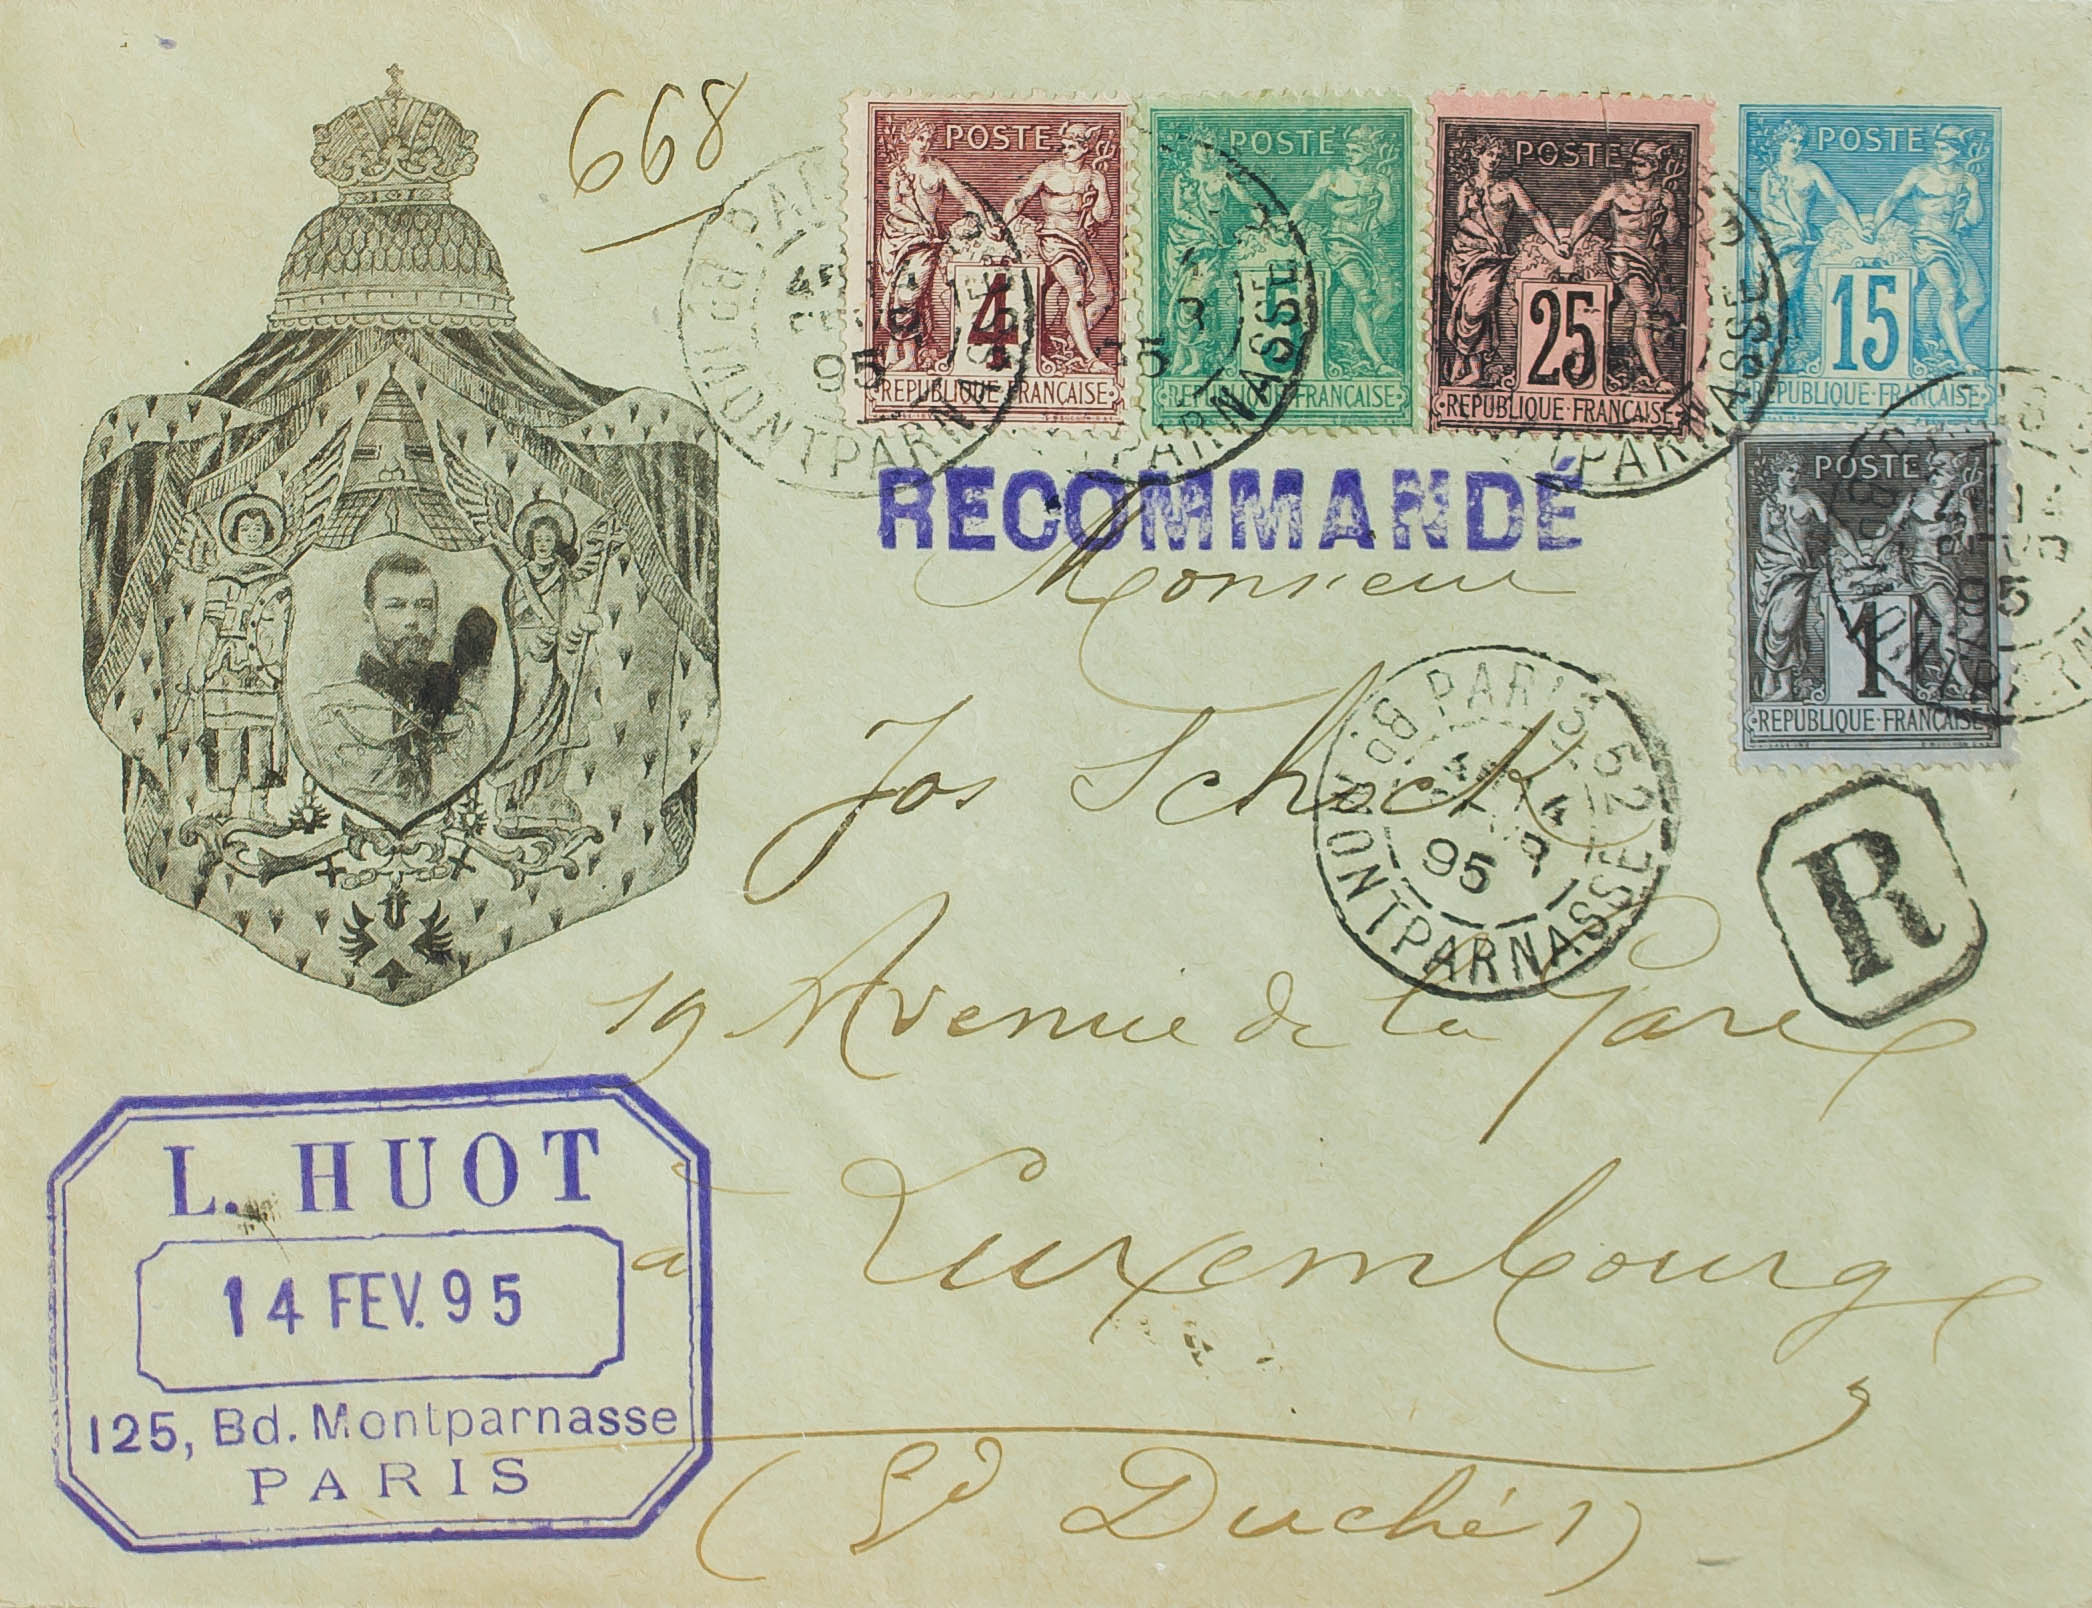 668
POSTE
4
REPUBLIQUE FRANÇAISE
POSTE
5
REPUBLIQUE FRANÇAISE
POSTE
25
REPUBLIQUE FRANÇAISE
POSTE
15
REPUBLIQUE FRANÇAISE
POSTE
1
REPUBLIQUE FRANÇAISE
95
MONTPARNASSE
RECOMMANDÉ
Monsieur
Jos Schock
PARIS 52
95
Bd MONTPARNASSE
R
19 Avenue de la Gare
à Luxembourg
(Gd Duché)
L. HUOT
14 FEV. 95
125, Bd. Montparnasse
PARIS